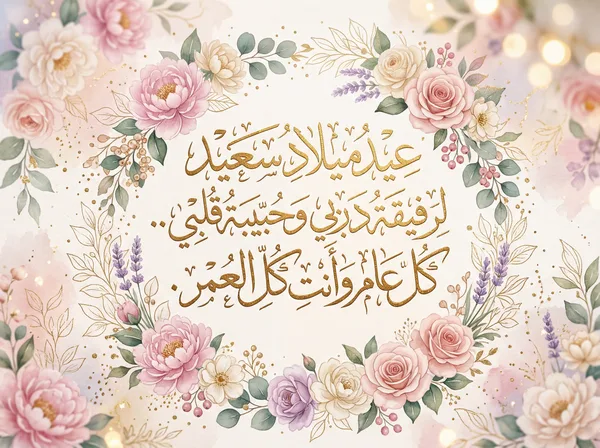 عِيدُ مِيلادٍ سَعِيد
لِرَفِيقَةِ دَرْبِي وَحَبِيبَةِ قَلْبِي ..
كُلّ عَام وَأَنتِ كُلّ العُمْر.